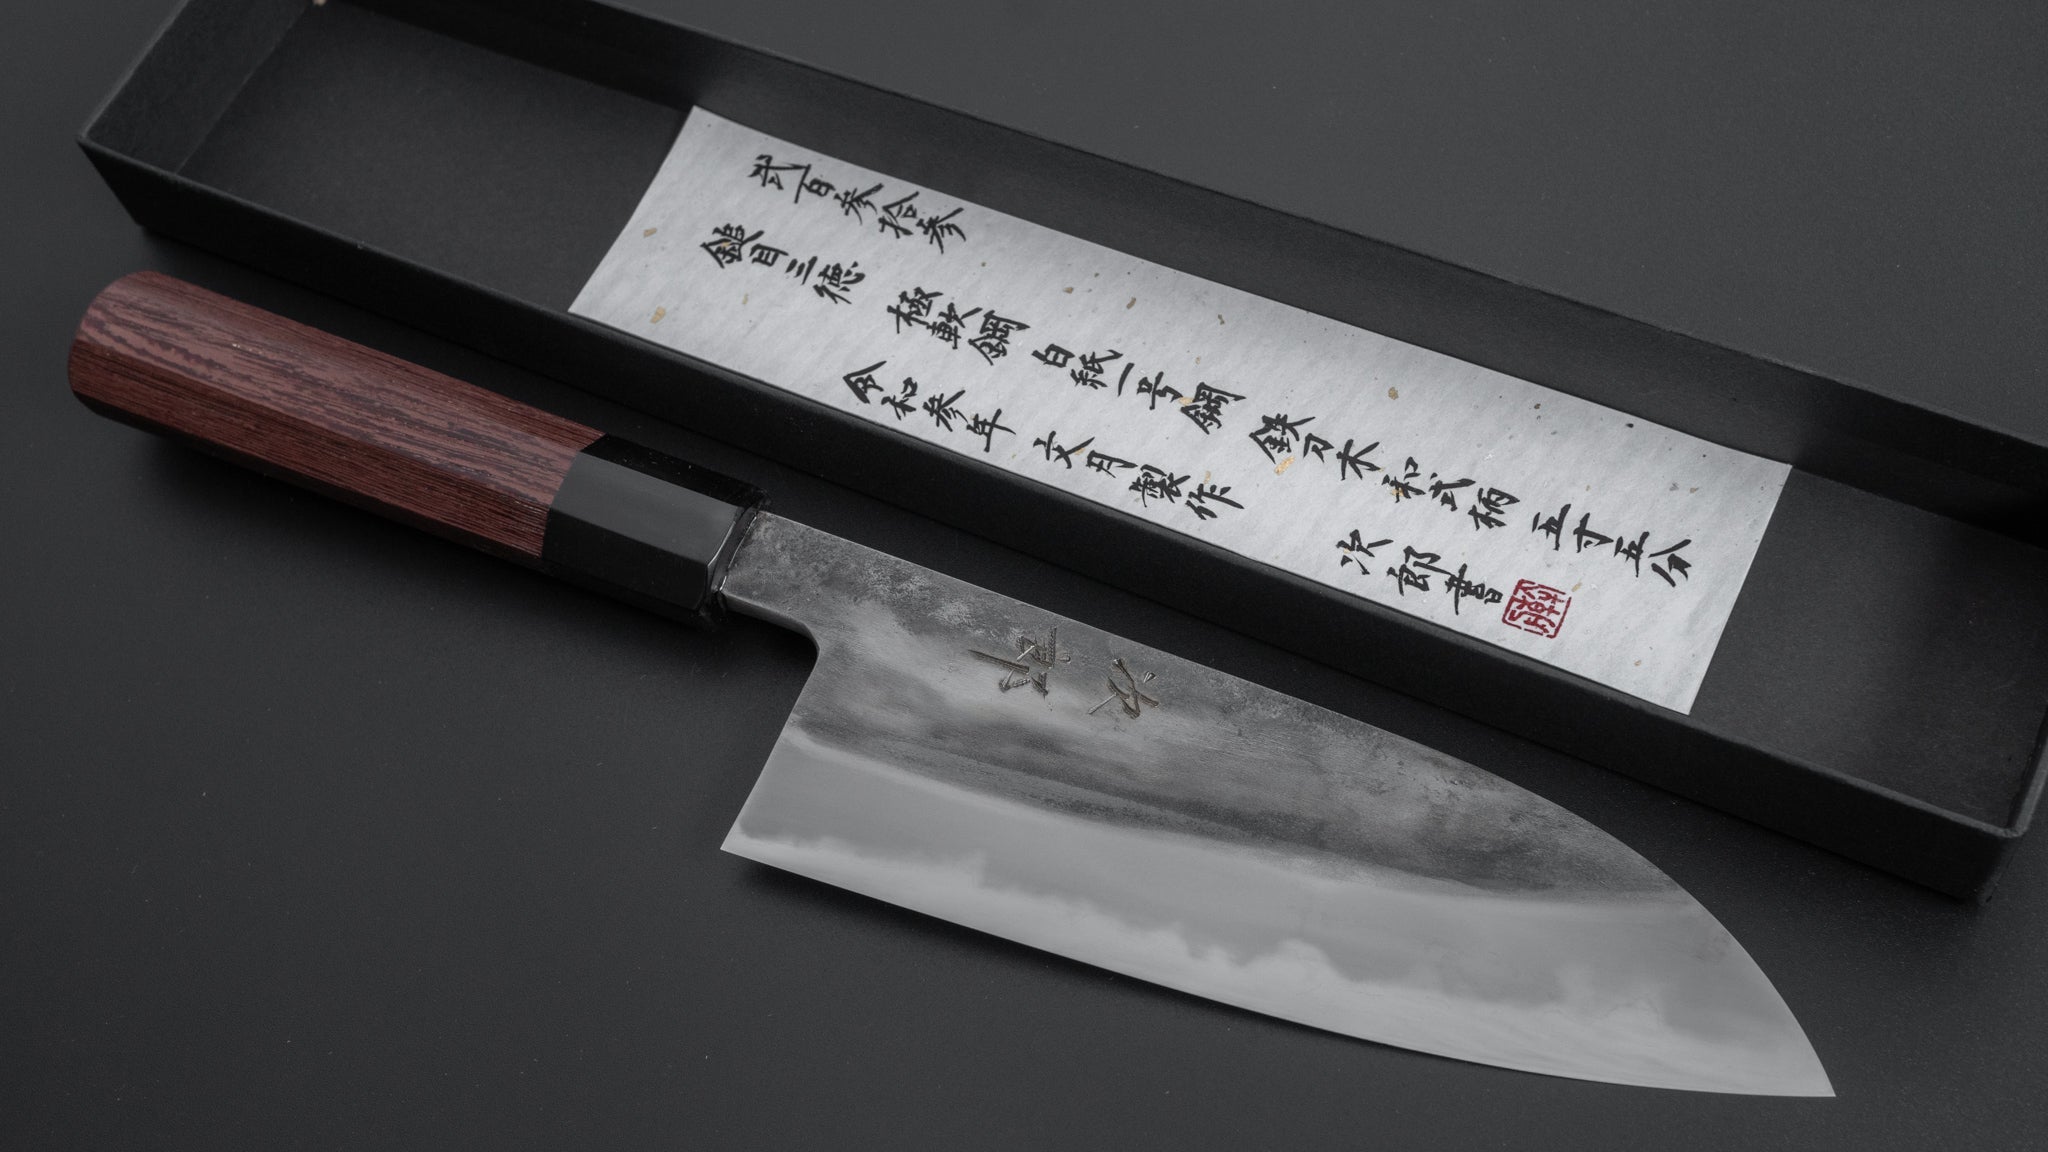 弐百参拾参
鎚目三徳 極軟鋼 白紙一号鋼 鉄刀木和式柄 五寸五分
令和参年 文月製作 次郎書
次郎